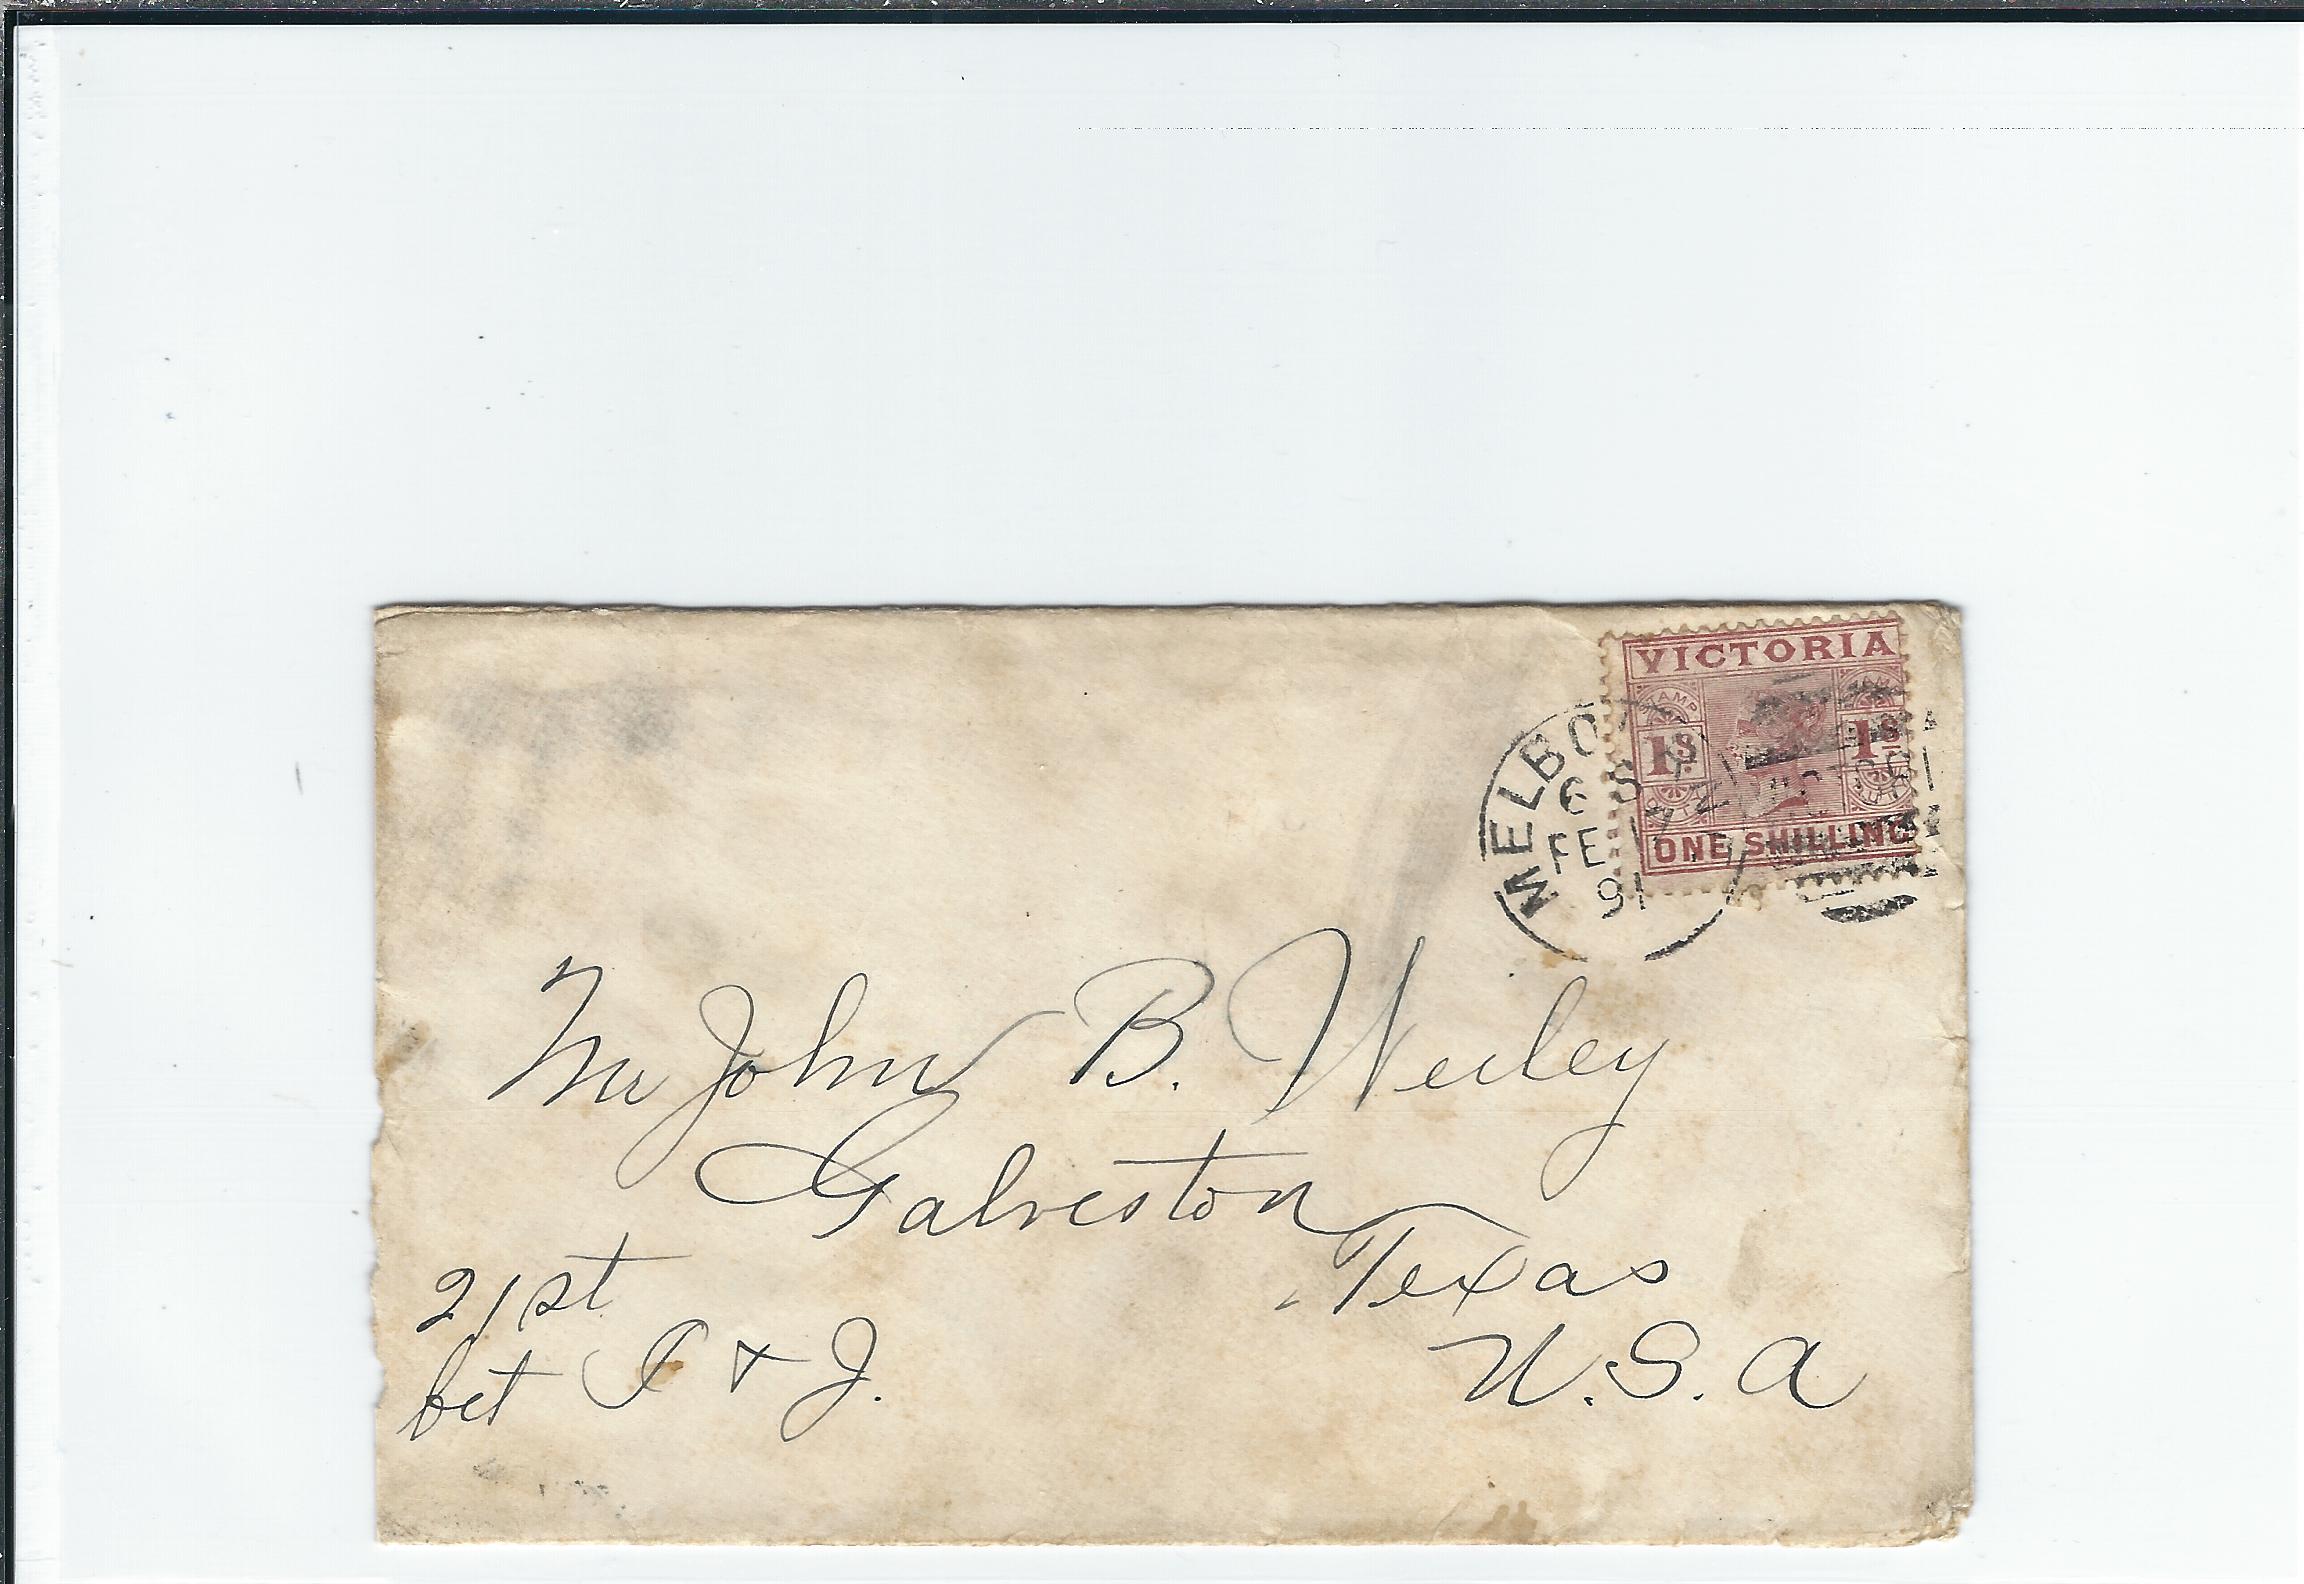 VICTORIA
STAMP
1S 1S
ONE SHILLING
MELBO
6 S
FE 17
91
Mr John B. Werley
Galveston
Texas
U.S.A
21st
bet I & J.